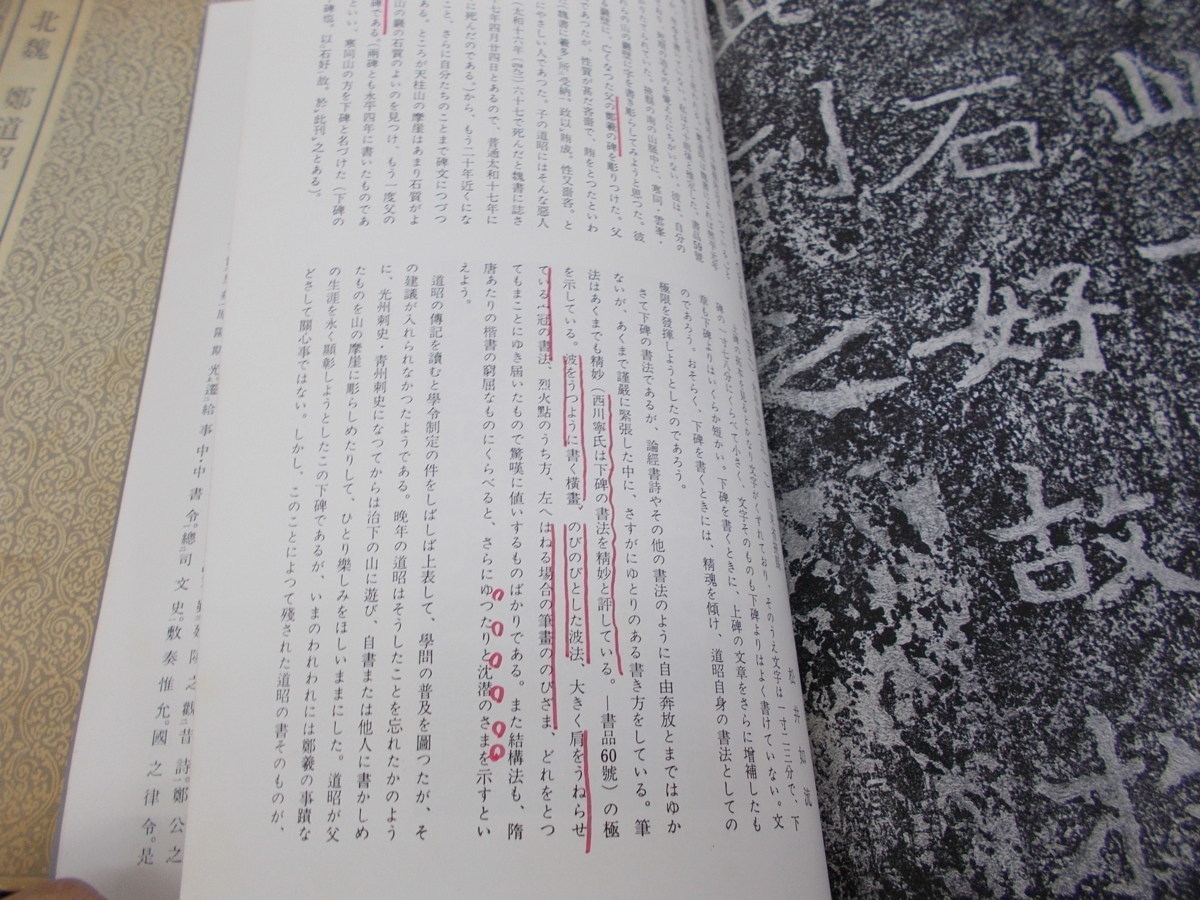 此
刊
之
山
石
好
故
於
松井如流
碑の一寸七八分にくらべて小さく、文字そのものも下碑よりはよく書けていない。文
章も下碑よりはいくらか短かい。下碑を書くときに、上碑の文章をさらに增補したも
のであろう。おそらく、下碑を書くときには、精魂を傾け、道昭自身の書法としての
極限を發揮しようとしたのであろう。
さて下碑の書法であるが、論經書詩やその他の書法のように自由奔放とまではゆか
ないが、あくまで謹嚴に緊張した中に、さすがにゆとりのある書き方をしている。筆
法はあくまでも精妙（西川寧氏は下碑の書法を精妙と評している。—書品60號）の極
を示している。波をうつように書く橫畫、のびのびとした波法、大きく肩をうねらせ
ている冖冠の書法、烈火點のうち方、左へはねる場合の筆畫ののびざま、どれをとつ
てもまことにゆき屆いたもので驚嘆に値いするものばかりである。また結構法も、隋
唐あたりの楷書の窮屈なものにくらべると、さらにゆつたりと沈潜のさまを示すとい
えよう。
道昭の傳記を讀むと學令制定の件をしばしば上表して、學問の普及を圖つたが、そ
の建議が入れられなかつたようである。晩年の道昭はそうしたことを忘れたかのよう
に、光州刺史・青州刺史になつてからは治下の山に遊び、自書または他人に書かしめ
たものを山の摩崖に彫らしめたりして、ひとり樂しみをほしいままにした。道昭が父
の生涯を永く顯彰しようとしたこの下碑であるが、いまのわれわれには鄭羲の事蹟な
どさして關心事ではない。しかし、このことによつて殘された道昭の書そのものが、
の山の巖壁に字を書き彫らしてみようと思つた。彼
に、亡くなつた父の鄭羲の碑を彫りつけた。父
であつたが、性質が甚だ吝嗇で、賄をとつたといわ
魏書に羲多所受納、政以賄成。性又嗇吝。と
にやさしい人であつた。子の道昭にはそんな惡人
（太和十六年（四九二）六十七で死んだと魏書に誌さ
十七年四月廿四日とあるので、普通太和十七年に
に死んだのである。）から、もう二十年近くにな
こと、さらに自分たちのことまで碑文につづつ
ある。ところが天柱山の摩崖はあまり石質がよ
山の巖の石質のよいのを見つけ、もう一度父の
碑である。（兩碑とも永平四年に書いたものであ
といい、寒同山の方を下碑と名づけた（下碑の
碑也。以石好故。於此刊之とある）。
陽之觀。昔詩。鄭公之
給事中・中書令。總司文史。敷奏惟允。國之律令。是
北魏 鄭道昭